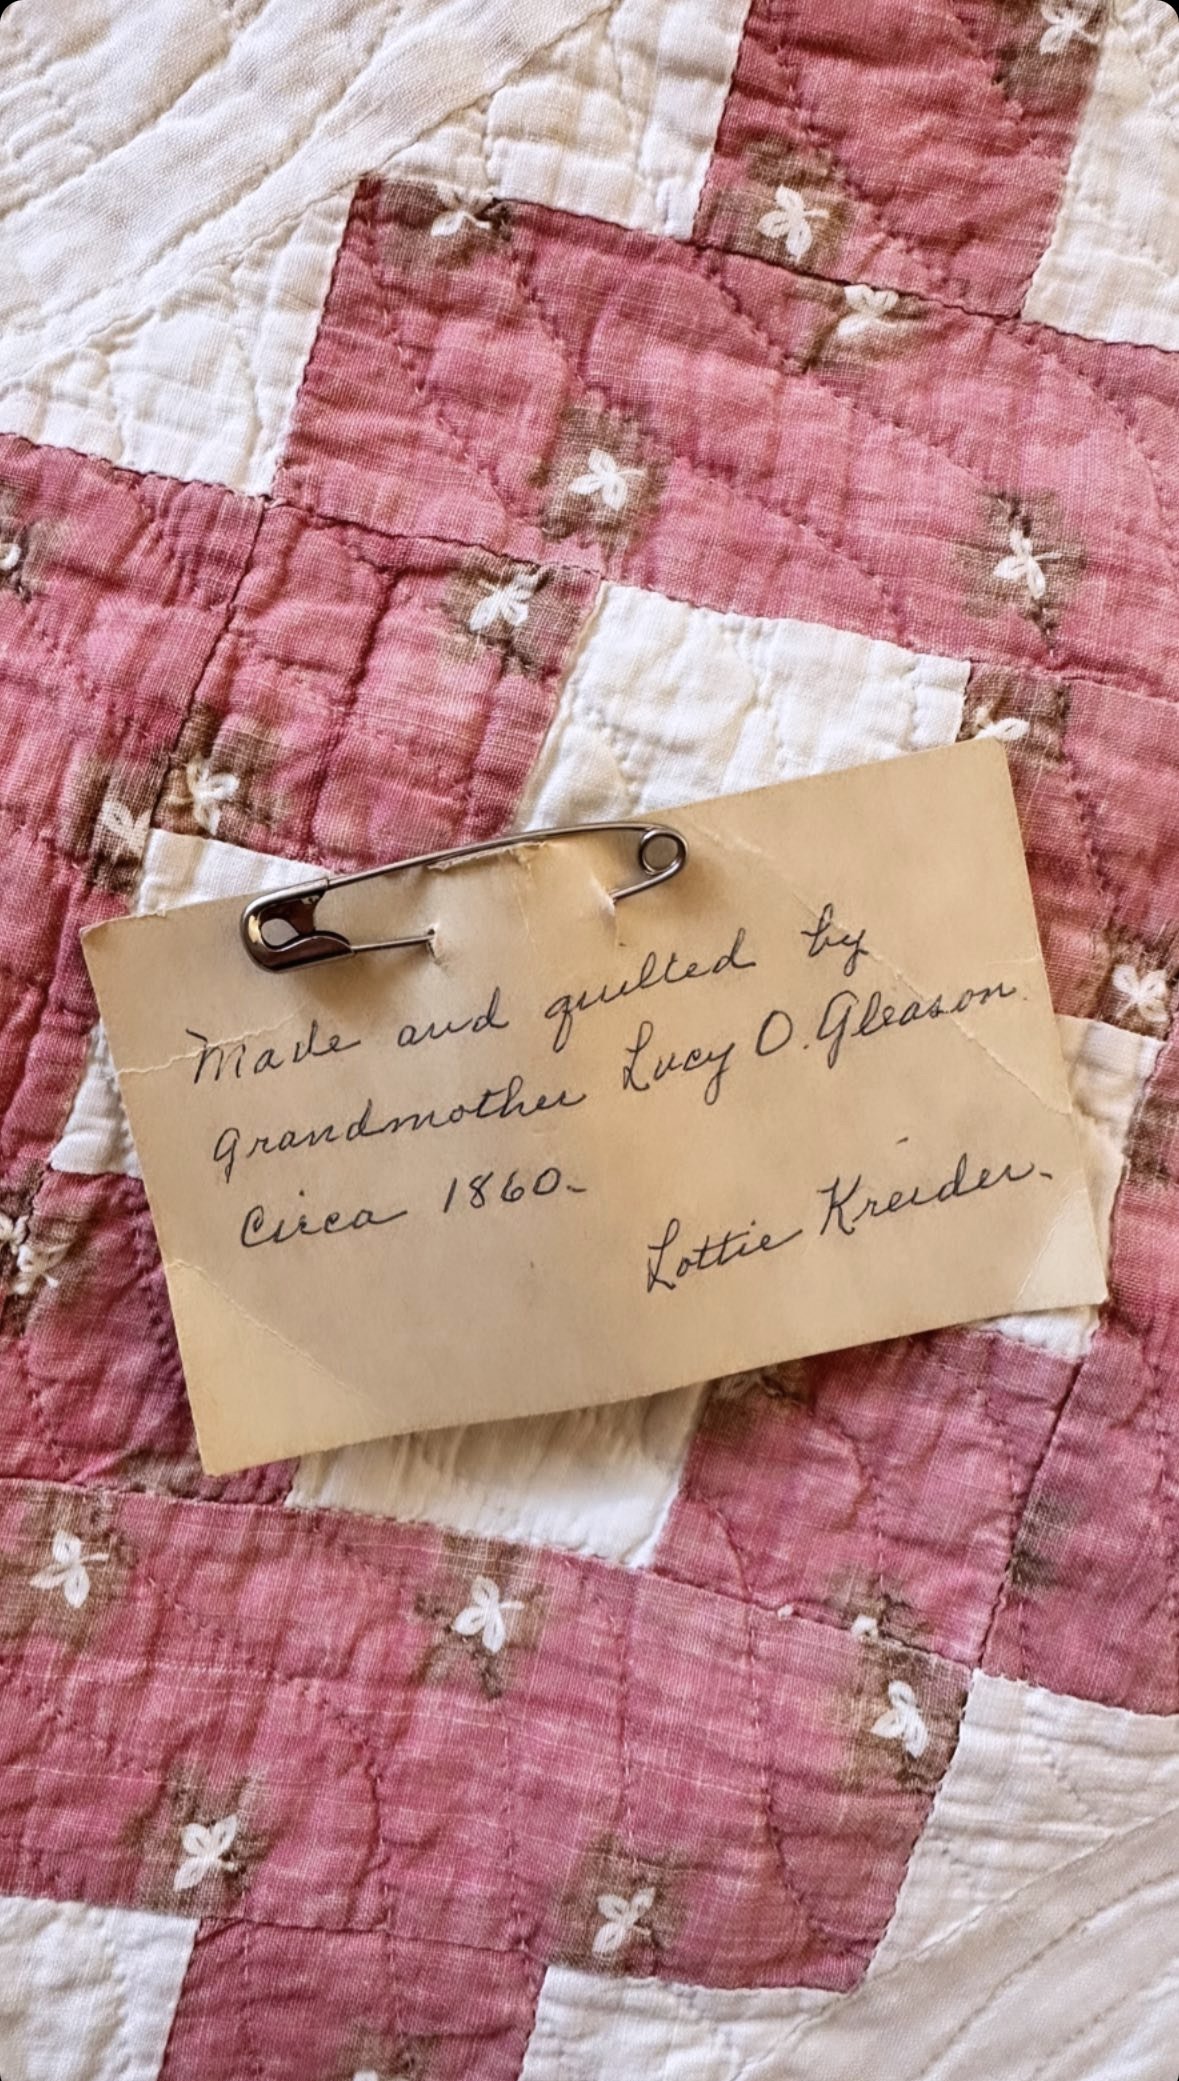 Made and quilted by
Grandmother Lucy O. Gleason
Circa 1860-
Lottie Kreider-